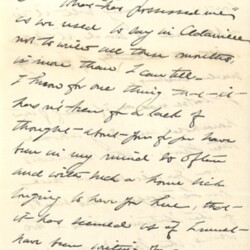 "What has possessed me"
as we used to say in
not to write all these months,
is more than I can tell.
I know for one thing that it
has not been for a lack of
thought about you for you have
been in my mind so often
and with such a home sick
longing to have you here, that
it has seemed as if I must
have been